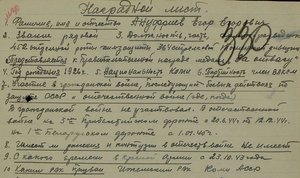 Наградной лист.
1. Фамилия, имя и отчество Ануфриев Егор Егорович
2. Звание рядовой 3. Должность,
Представляется к правительственной награде медаль "За отвагу"
4. Год рождения 1926г. 5. Национальность Коми 6. Партийность член ВЛКСМ
7. Участие в гражданской войне, боевых действиях по
защите СССР и отечественной войне (где, когда)
В гражданской войне не участвовал. В отечественной
войне на 3ем Прибалтийском фронте с по 12.12.44г.
на 1ом Белорусском фронте с 1.01.45г.
8. Имеет ли ранения и контузии в отечеств. войне Не имеет
9. С какого времени в Красной Армии с 23.10.43 года
10. Каким РВК призван РВК Коми АССР